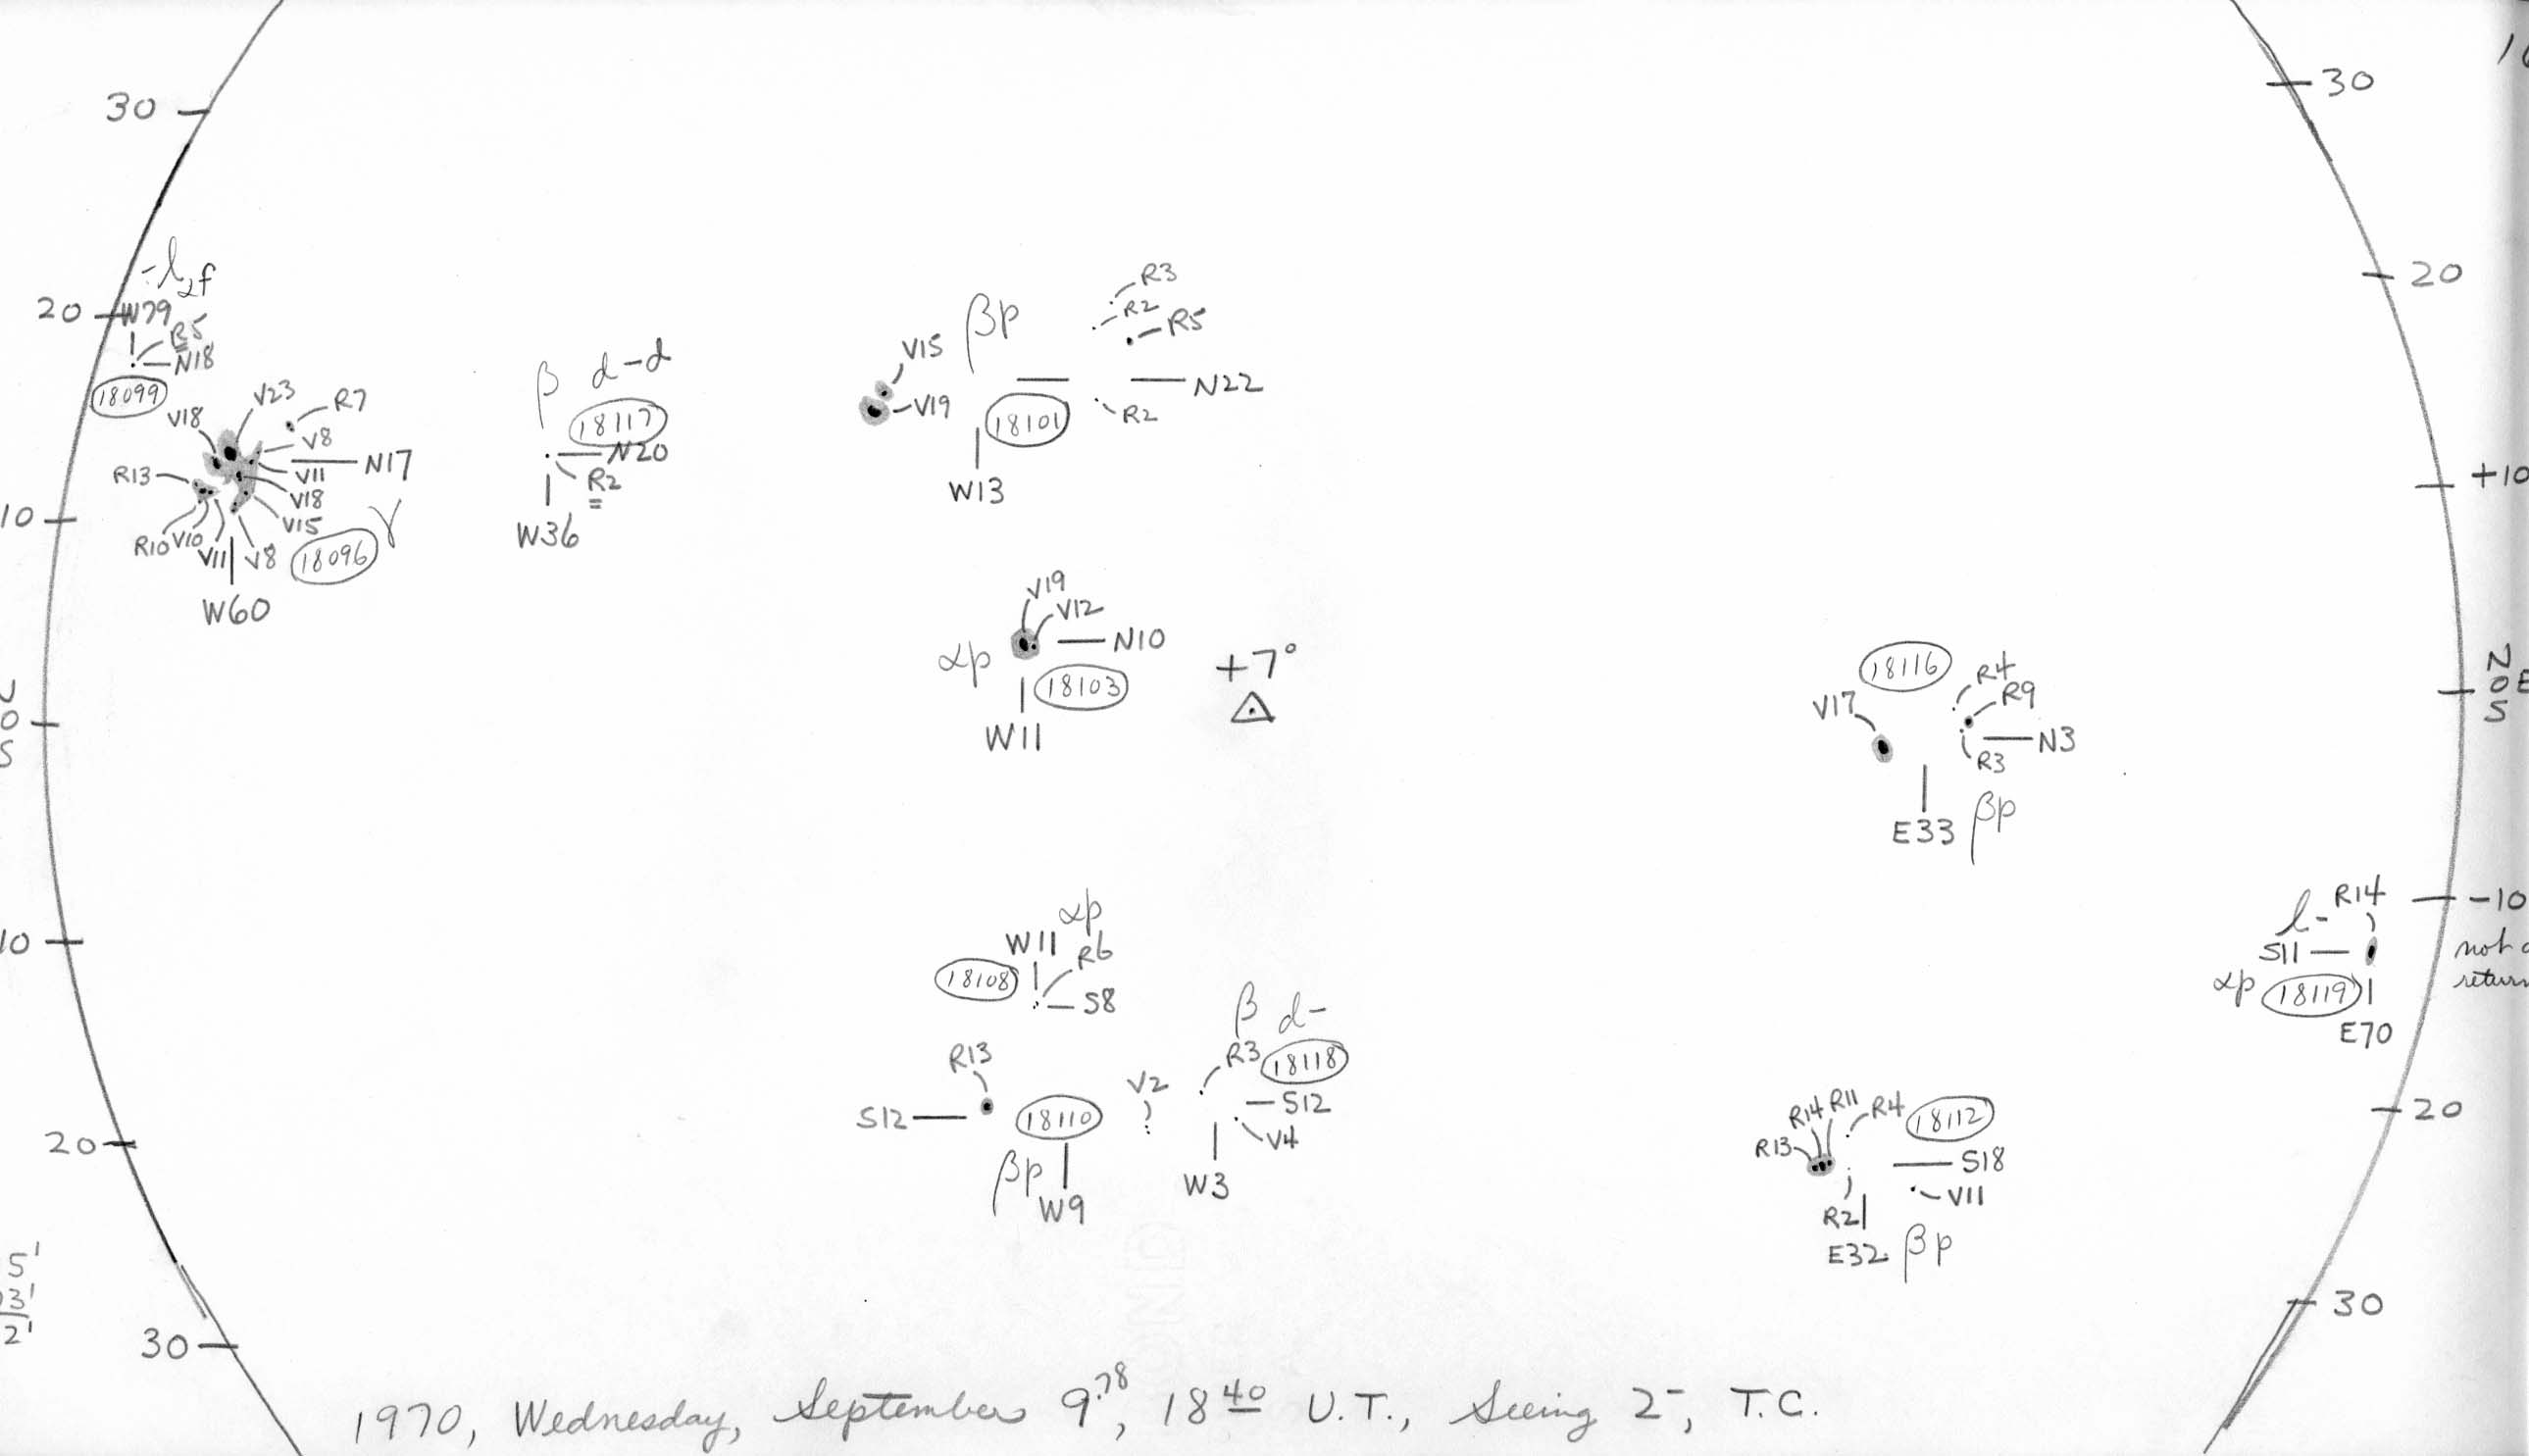 30
30
20
20
10
+10
0
S
N
0 E
S
10
-10
20
20
30
30
-l 2f
W79
R5
N18
18099
V23
R7
V18
V8
N17
R13
V11
V18
V15
R10 V10 V11 V8
18096 γ
W60
β d-d
18117
N20
R2
W36
βp
R3
R2
R5
V15
V19
N22
18101
R2
W13
V19
V12
N10
αp
18103
W11
+7°
18116
R4
R9
V17
N3
R3
E33 βp
αp
W11
R6
18108
S8
l- R14
S11
αp 18119
E70
not
return
β d-
R3
18118
R13
V2
S12
18110
S12
V4
βp
W9
W3
R14 R11 R4
18112
R13
S18
V11
R2
E32 βp
5'
3'
2'
1970, Wednesday, September 9.78, 18 40 U.T., Seeing 2-, T.C.